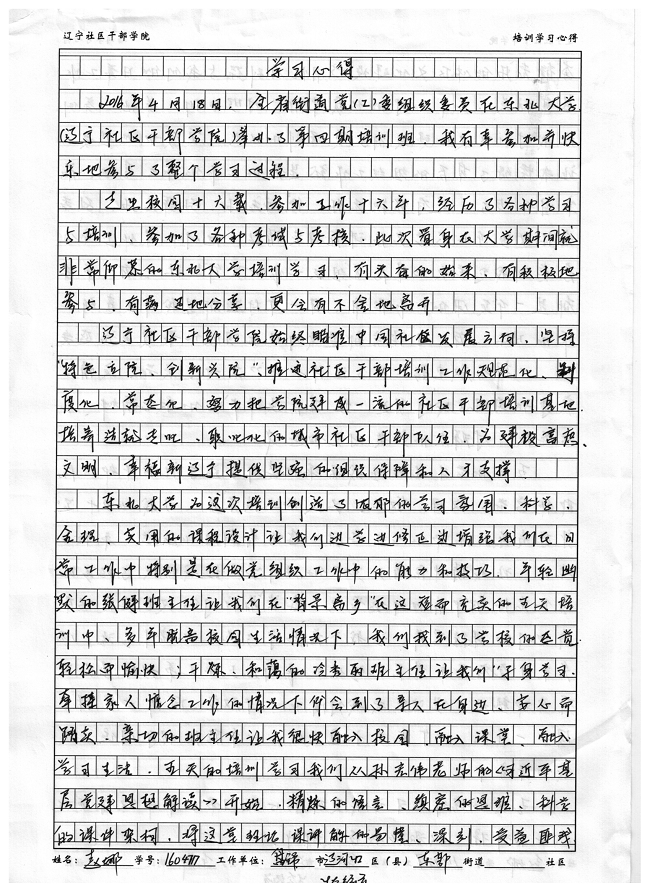 辽宁社区干部学院 培训学习心得
学习心得
2016年4月18日，全省街道党(工)委组织委员在东北大学
(辽宁社区干部学院)举办了第四期培训班，我有幸参加并快
乐地参与了整个学习过程。
走出校园十六载，参加工作十六年，经历了各种学习
与培训，参加了各种考试与考核，此次置身在大学期间就
非常仰慕的东北大学培训学习，有兴奋的始来，有积极地
参与，有满地分享，更会有不舍地离开。
辽宁社区干部学院始终瞄准中国社会发展方向，坚持
"特色立院、创新兴院"，推进社区干部培训工作规范化、制
度化、常态化，努力把学院建成一流的社区干部培训基地，
培养造就专业化、职业化的城市社区干部队伍，为建设富庶
文明、幸福新辽宁提供坚强的组织保障和人才支撑。
东北大学为这次培训创造了浓郁的学习氛围，科学、
合理、实用的课程设计让我们边学边修正边增强我们在日
常工作中特别是在做党组织工作中的能力和技巧。年轻幽
默的张健班主任让我们在"背景离乡"在这短而充实的五天培
训中，多年脱离校园生活情况下，我们找到了学校的感觉，
轻松而愉快；干练、和蔼的班主任让我们"只身学习，
牵挂家人惦念工作的情况下体会到了亲人在身边，安心而
踏实。亲切的班主任让我很快融入校园、融入课堂、融入
学习生活。五天的培训学习我们从孙老师的《近年基
层党建思想解读》开始，精炼的语言、缜密的思维、科学
的课件架构，将这堂理论课讲解的易懂、深刻，受益匪浅
姓名：赵娜 学号：160417 工作单位： 市 区(县) 东郊 街道 社区